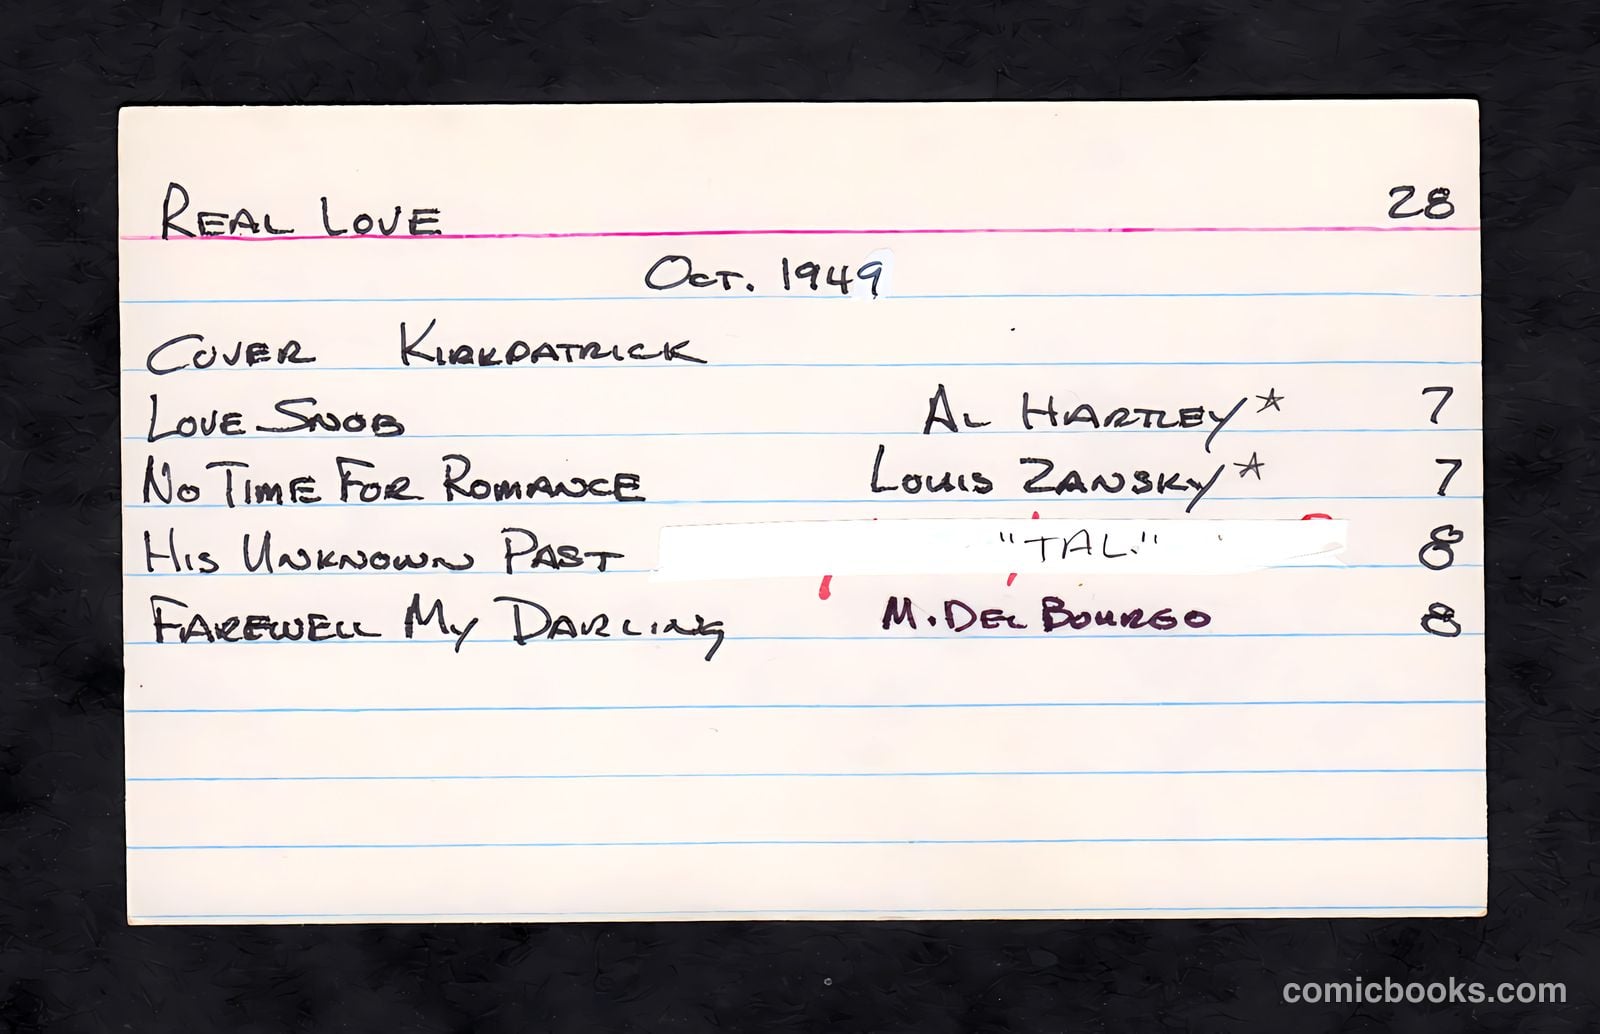 REAL LOVE 28
OCT. 1949
COVER KIRKPATRICK
LOVE SNOB AL HARTLEY☆ 7
NO TIME FOR ROMANCE LOUIS ZANSKY☆ 7
HIS UNKNOWN PAST "TAL." 8
FAREWELL MY DARLING M. DEL BOURGO 8
comicbooks.com